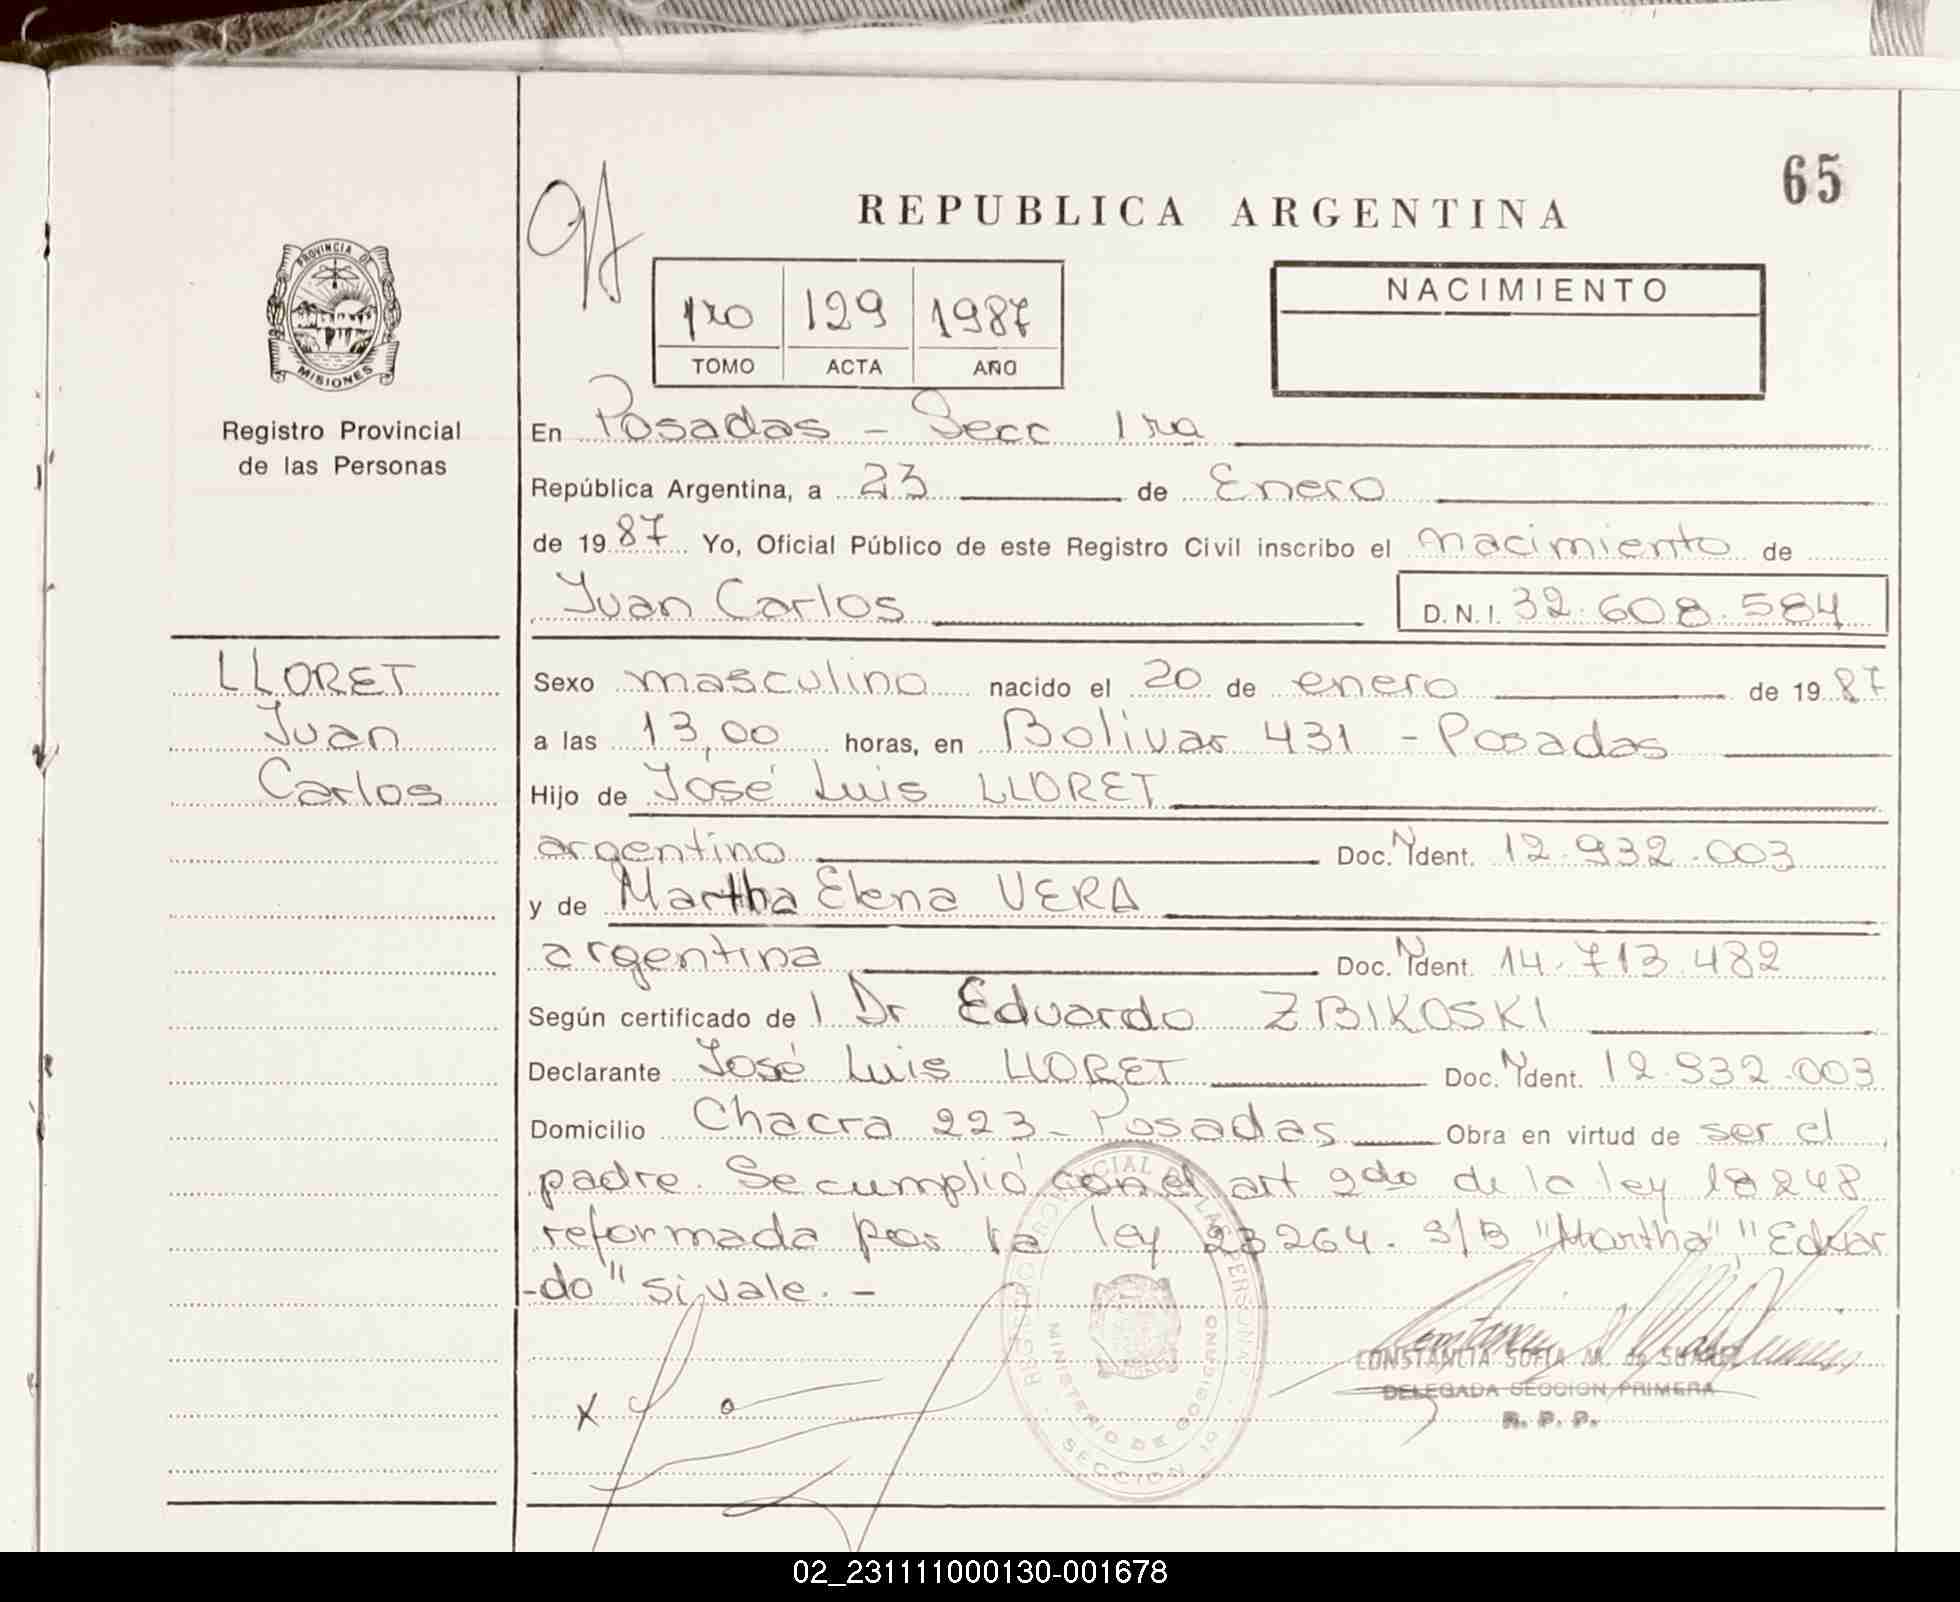 65
REPUBLICA ARGENTINA
PROVINCIA DE
MISIONES
Registro Provincial
de las Personas
1ro 129 1987
TOMO ACTA AÑO
NACIMIENTO
En Posadas - Secc 1ra
República Argentina, a 23 de Enero
de 1987 Yo, Oficial Público de este Registro Civil inscribo el nacimiento de
Juan Carlos D.N.I. 32.608.584
LLORET
Juan
Carlos
Sexo masculino nacido el 20 de enero de 1987
a las 13,00 horas, en Bolivar 431 - Posadas
Hijo de José Luis LLORET
argentino Doc. Ident. 12.932.003
y de Martha Elena VERA
argentina Doc. Ident. 14.713.482
Según certificado del Dr Eduardo ZBIKOSKI
Declarante José Luis LLORET Doc. Ident. 12.932.003
Domicilio Chacra 223 - Posadas Obra en virtud de ser el
padre. Se cumplió con el art 2do de la ley 18248
reformada por la ley 23264. S/B "Martha", "Eduar
-do" si vale. -
REGISTRO PROVINCIAL DE LAS PERSONAS
MINISTERIO DE GOBIERNO
SECCION 1º
CONSTANCIA SOFIA M. de
DELEGADA SECCION PRIMERA
R. P. P.
X
02_231111000130-001678